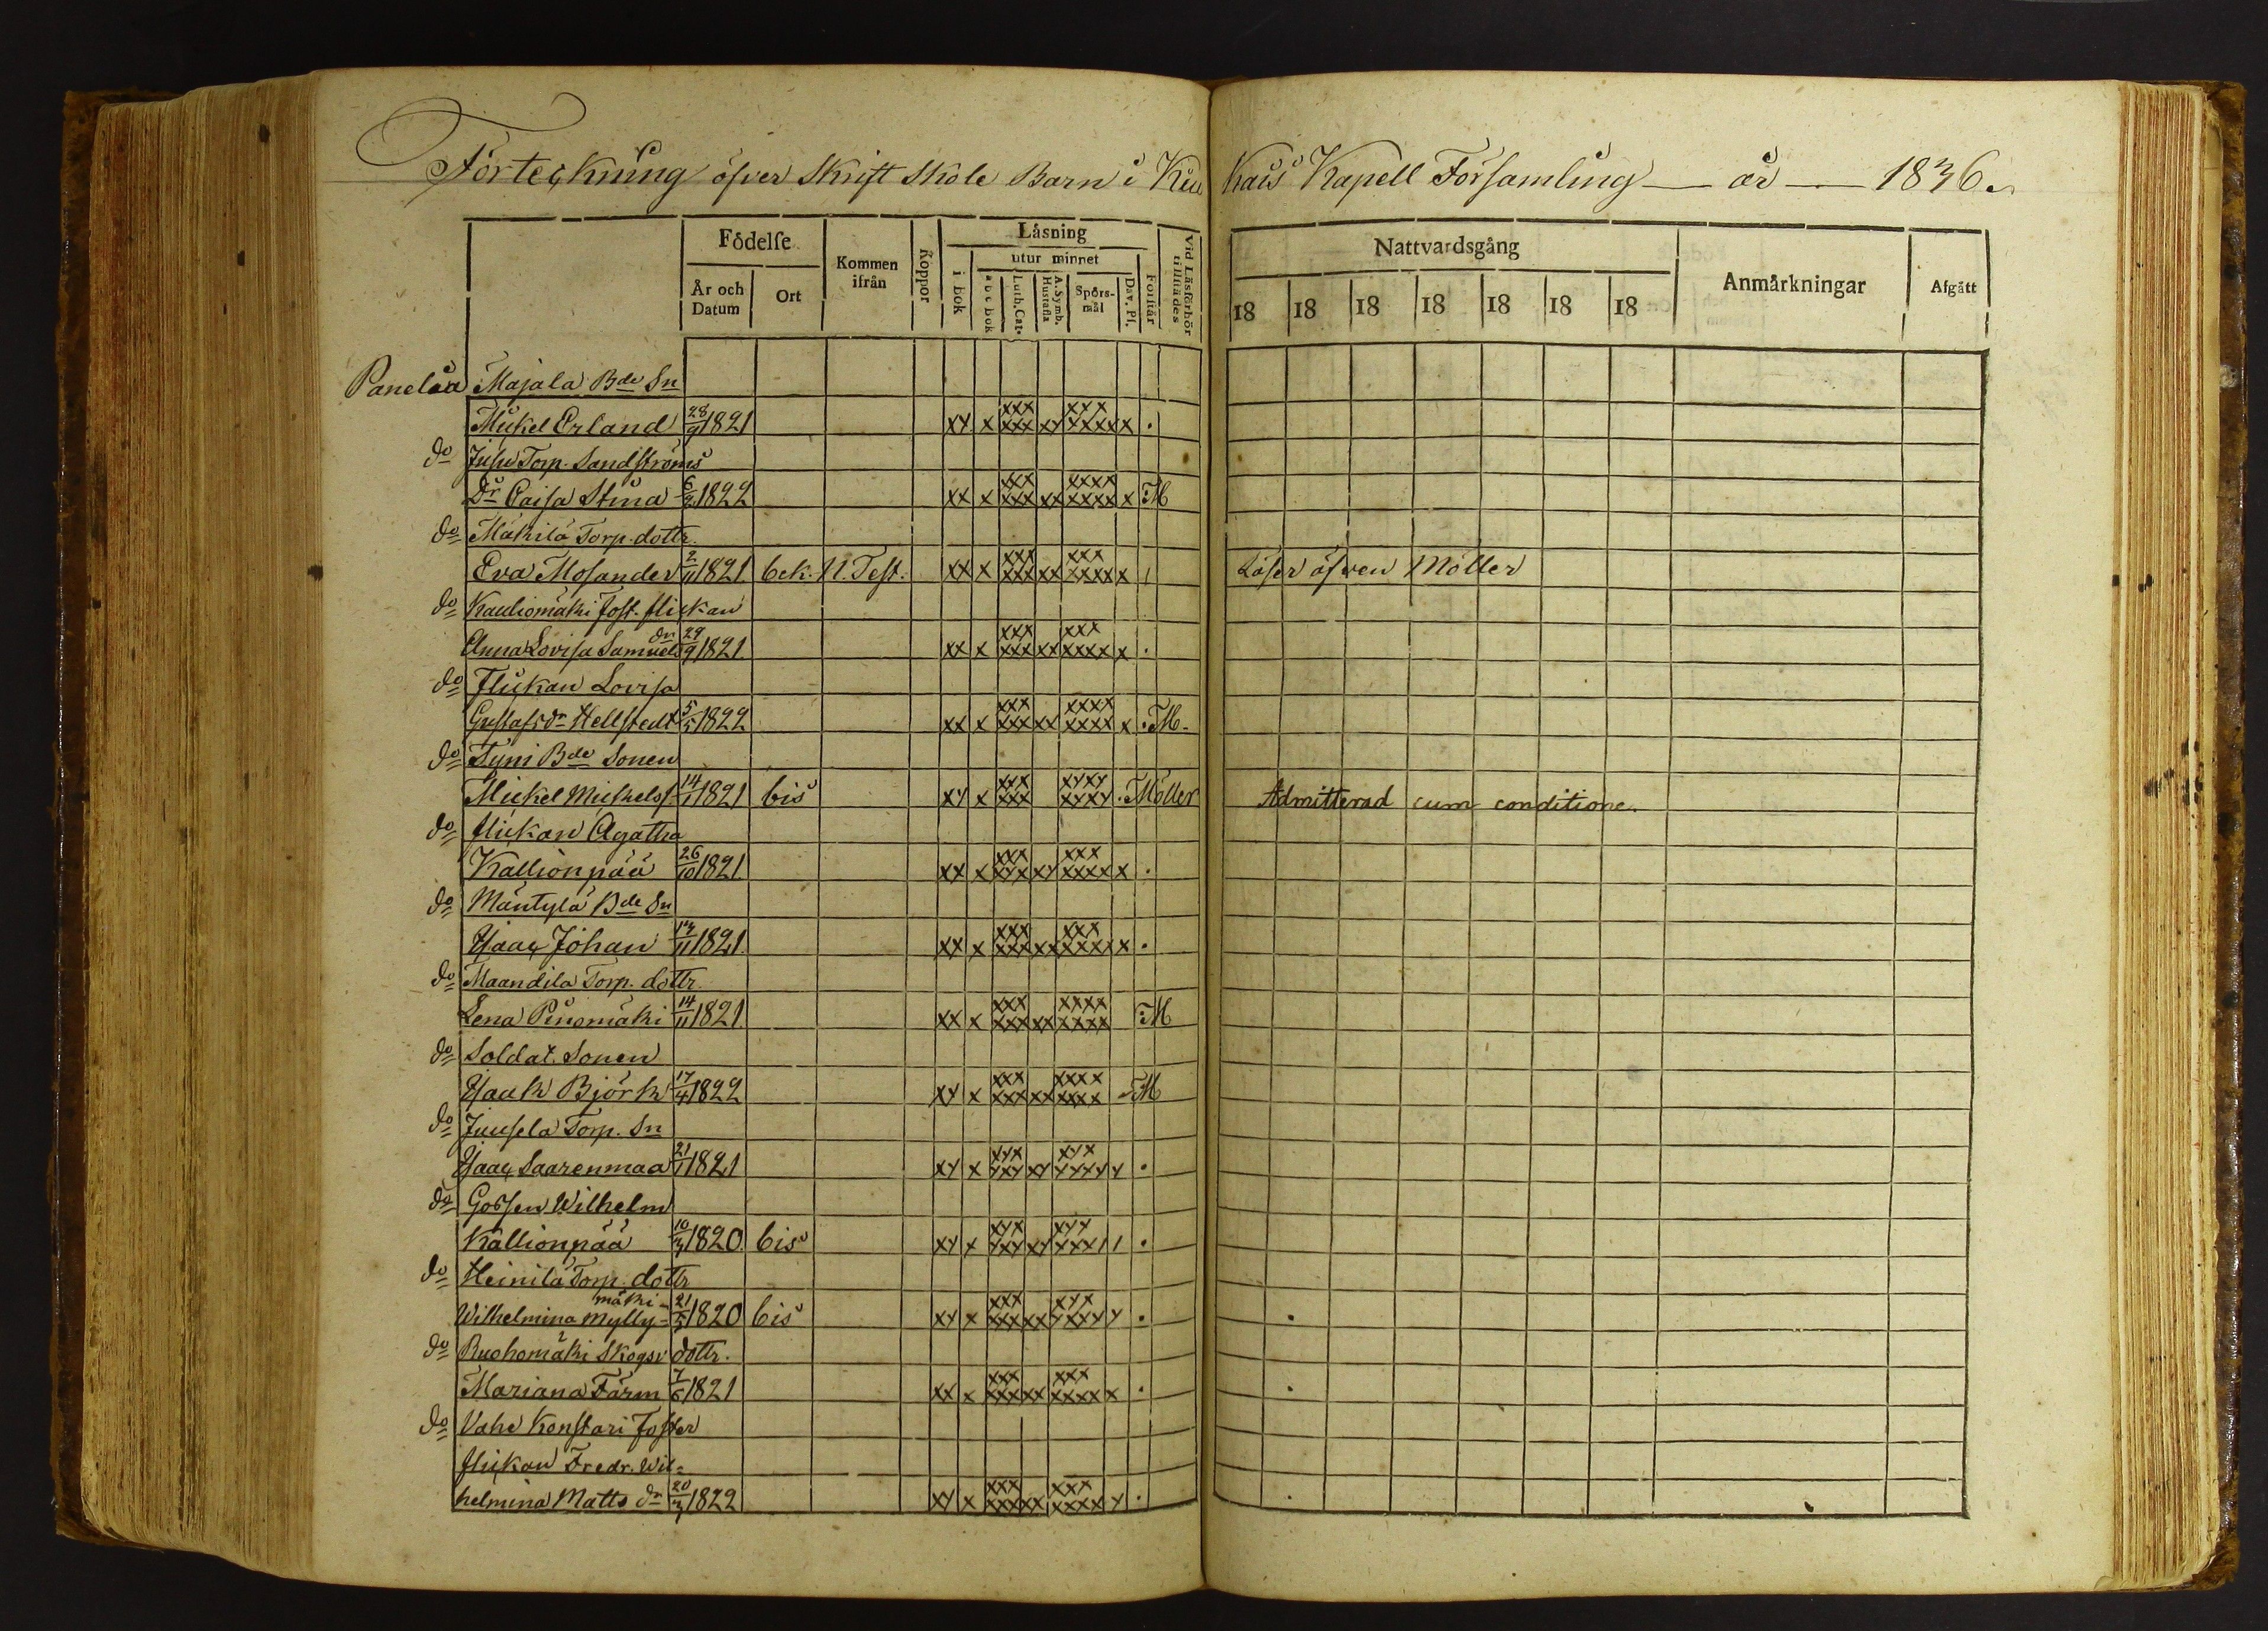 Förteckning öfver Skrift Skole Barn i Kiu Kais Kapell Församling — år — 1836.
Födelse
År och Datum
Ort
Kommen ifrån
Koppor
Läsning
i bok
utur minnet
a b c bok
Luth. Cat.
A. Symb. Hustafla
Spörs-mål
Dav. Ps.
Förstår
Vid Läsförhör tillstädes
Nattvardsgång
18 18 18 18 18 18 18
Anmärkningar
Afgått
Panelia Majala Bde Sn
Mickel Erland 28/9 1821 xy x xxx xxx xy xxx xxxx x .
do Juse Torp. Sandströms
Dr Caisa Stina 6/2 1822 xx x xxx xxx xx xxxx xxxx x M
do Mäkilä Torp. dottr.
Eva Mosander 2/11 1821 bek. N. Test. xx x xxx xxx xx xxx xxxx x Läser öfven Möller
do Kauliomäki Fost. flickan
Anna Lovisa Samuels dr 29/9 1821 xx x xxx xxx xx xxx xxxx x .
do Flickan Lovisa
Gustafsdr Hellstedt 5/5 1822 xx x xxx xxx xx xxxx xxxx x . M.
do Tyni Bde Sonen
Mickel Mickelss. 14/1 1821 bis xy x xxx xxx xyxy xyxy . Möller Admitterad cum conditione.
do flickan Agatha
Kallionpää 26/10 1821 xx x xxx xyx xy xxx xxxx x .
do Mäntylä Bde Sn
Isaac Johan 13/11 1821. xx x xxx xxx xx xxx xxxx x .
do Maandila Torp. dottr.
Lena Pinomäki 14/11 1821 xx x xxx xxx xx xxxx xxxx M
do Soldat. Sonen
Isaak Björk 17/4 1822 xy x xxx xxx xx xxxx xxxx M
do Juusela Torp. Sn
Isaac Saarenmaa 21/1 1821 xy x xyx yxy xy xyx yyyy y .
do Gossen Wilhelm
Kallionpää 10/3 1820 bis xy x xyx yxy xy xyy yxx 1 1 .
do Heinilä Torp. dottr
Wilhelmina Mylly= mäki 21/5 1820 bis xy x xxx xxx xx xyx yxyy y .
do Ruohomäki Skogsv dottr.
Mariana Färm 7/6 1821 xx x xxx xxx xx xxx xxxx x .
do Vahe Konstari Foster
flickan Fredr. Wil=
helmina Matts dr 20/3 1822 xy x xxx xxx xx xxx xxxx y .